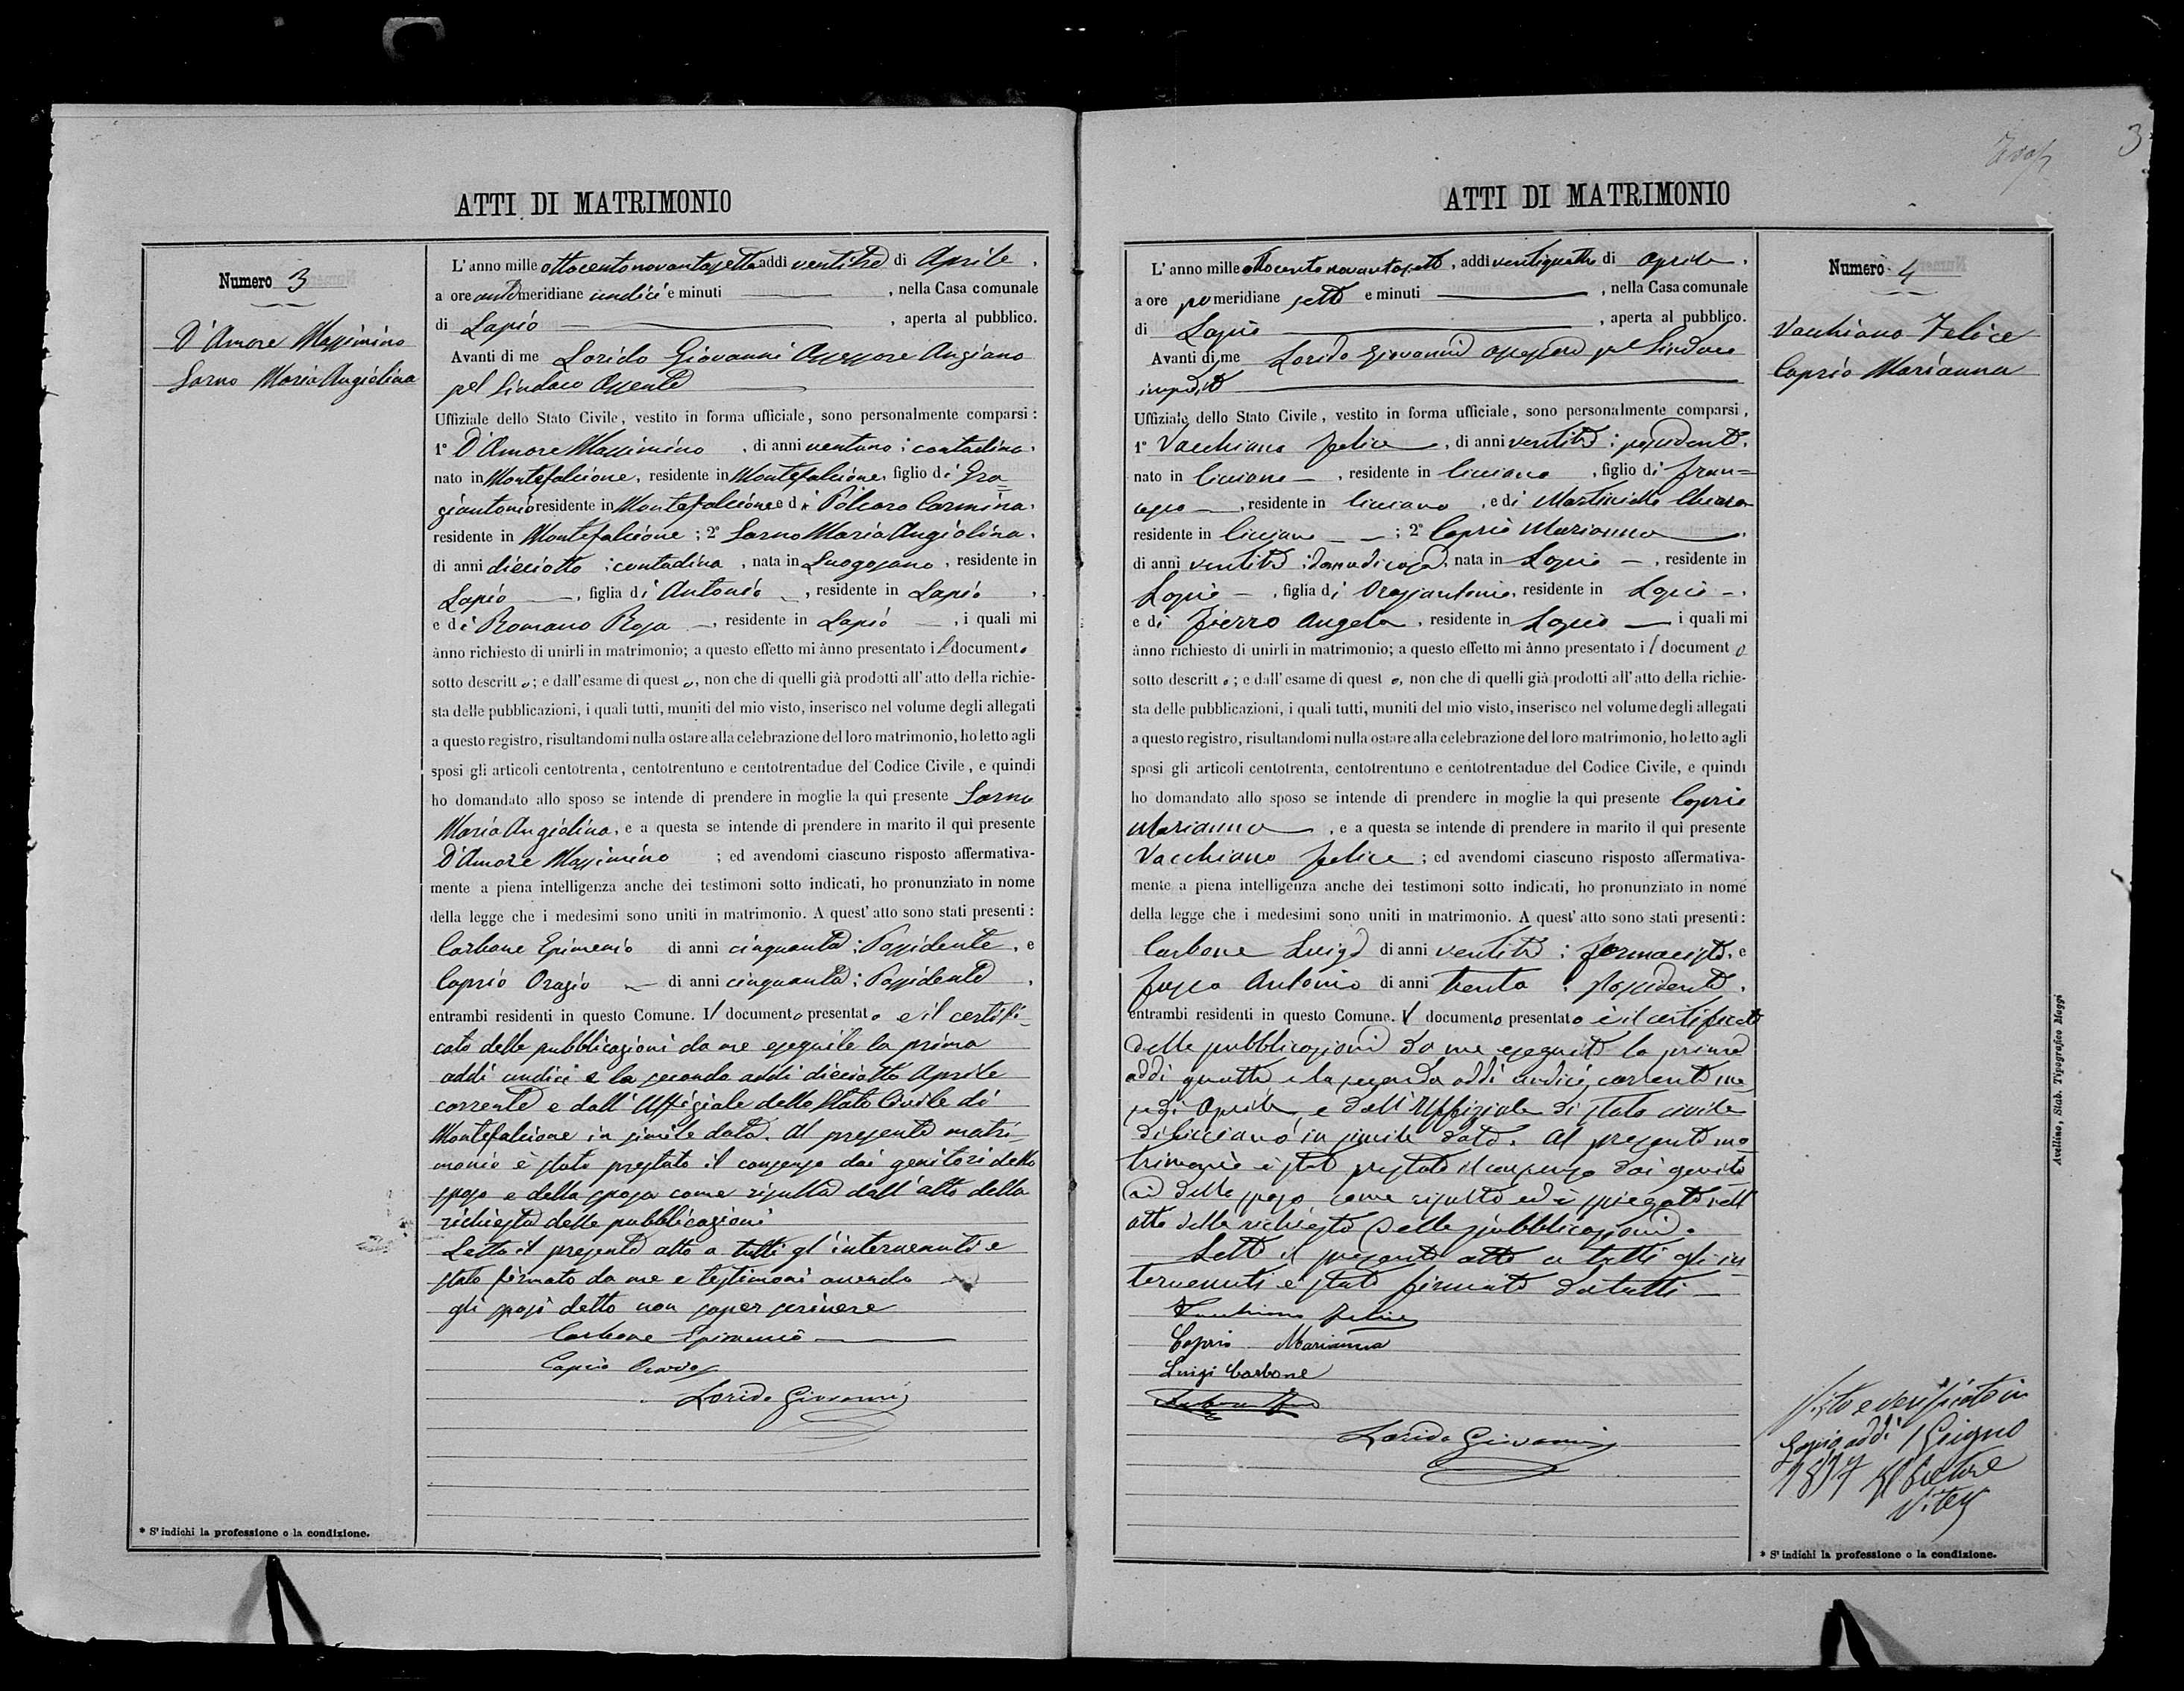 3
ATTI DI MATRIMONIO
Numero 3
D'Amore Massimino
Sarno Maria Angiolina
L'anno mille ottocentonovantasette addì ventitre di Aprile,
a ore antimeridiane undici e minuti , nella Casa comunale
di Lapio , aperta al pubblico.
Avanti di me Lorido Giovanni Assessore Anziano
pel Sindaco Assente
Uffiziale dello Stato Civile, vestito in forma ufficiale, sono personalmente comparsi:
1° D'Amore Massimino, di anni ventuno; contadino,
nato in Montefalcione, residente in Montefalcione, figlio di Gra=
ziantonio residente in Montefalcione e di Polcaro Carmina,
residente in Montefalcione; 2° Sarno Maria Angiolina,
di anni dieciotto; contadina, nata in Luogosano, residente in
Lapio, figlia di Antonio, residente in Lapio,
e di Romano Rosa, residente in Lapio, i quali mi
ànno richiesto di unirli in matrimonio; a questo effetto mi ànno presentato il documento
sotto descritto; e dall'esame di questo, non che di quelli già prodotti all'atto della richie-
sta delle pubblicazioni, i quali tutti, muniti del mio visto, inserisco nel volume degli allegati
a questo registro, risultandomi nulla ostare alla celebrazione del loro matrimonio, ho letto agli
sposi gli articoli centotrenta, centotrentuno e centotrentadue del Codice Civile, e quindi
ho domandato allo sposo se intende di prendere in moglie la qui presente Sarno
Maria Angiolina, e a questa se intende di prendere in marito il qui presente
D'Amore Massimino ; ed avendomi ciascuno risposto affermativa-
mente a piena intelligenza anche dei testimoni sotto indicati, ho pronunziato in nome
della legge che i medesimi sono uniti in matrimonio. A quest'atto sono stati presenti:
Carbone Epimenio di anni cinquanta; Possidente, e
Caprio Orazio di anni cinquanta; Possidente,
entrambi residenti in questo Comune. Il documento presentato è il certifi-
cato delle pubblicazioni da me eseguite la prima
addi undici e la seconda addi dieciotto Aprile
corrente e dall'Uffiziale dello Stato Civile di
Montefalcione in simile data. Al presente matri-
monio è stato prestato il consenso dai genitori dello
sposo e della sposa come risulta dall'atto della
richiesta delle pubblicazioni
Letto il presente atto a tutti gl'intervenuti e
stato firmato da me e testimoni avendo
gli sposi detto non saper scrivere
Carbone Epimenio
Caprio Orazio
Lorido Giovanni
* S'indichi la professione o la condizione.
ATTI DI MATRIMONIO
Numero 4
Vacchiano Felice
Caprio Marianna
L'anno mille ottocentonovantasette, addì ventiquattro di Aprile,
a ore pomeridiane sette e minuti , nella Casa comunale
di Lapio , aperta al pubblico.
Avanti di me Lorido Giovanni assessore pel Sindaco
impedito
Uffiziale dello Stato Civile, vestito in forma ufficiale, sono personalmente comparsi,
1° Vacchiano Felice, di anni ventitre; possidente,
nato in Cicciano, residente in Cicciano, figlio di Fran=
cesco, residente in Cicciano, e di Martiniello Chiara
residente in Cicciano; 2° Caprio Marianna,
di anni ventitre; donna di casa, nata in Lapio, residente in
Lapio, figlia di Oraziantonio, residente in Lapio,
e di Fierro Angela, residente in Lapio i quali mi
ànno richiesto di unirli in matrimonio; a questo effetto mi ànno presentato il documento
sotto descritto; e dall'esame di questo, non che di quelli già prodotti all'atto della richie-
sta delle pubblicazioni, i quali tutti, muniti del mio visto, inserisco nel volume degli allegati
a questo registro, risultandomi nulla ostare alla celebrazione del loro matrimonio, ho letto agli
sposi gli articoli centotrenta, centotrentuno e centotrentadue del Codice Civile, e quindi
ho domandato allo sposo se intende di prendere in moglie la qui presente Caprio
Marianna, e a questa se intende di prendere in marito il qui presente
Vacchiano Felice; ed avendomi ciascuno risposto affermativa-
mente a piena intelligenza anche dei testimoni sotto indicati, ho pronunziato in nome
della legge che i medesimi sono uniti in matrimonio. A quest'atto sono stati presenti:
Carbone Luigi di anni ventitre; farmacista, e
Fusco Antonio di anni trenta; possidente,
entrambi residenti in questo Comune. Il documento presentato è il certificato
delle pubblicazioni da me eseguite la prima
addì quattro e la seconda addì undici corrente me
se di Aprile e dall'Uffiziale di stato civile
di Cicciano in simile data. Al presente ma
trimonio è stato prestato il consenso dai genito
ri dello sposo come risulta ed è spiegato nell'
atto della richiesta delle pubblicazioni.
Letto il presente atto a tutti gli in
tervenuti è stato firmato da tutti
Vacchiano Felice
Caprio Marianna
Luigi Carbone
Lorido Giovanni
Visto e verificato in
Lapio addì 1 Giugno
1897 Il Pretore
* S'indichi la professione o la condizione.
Avellino, Stab. Tipografico Maggi